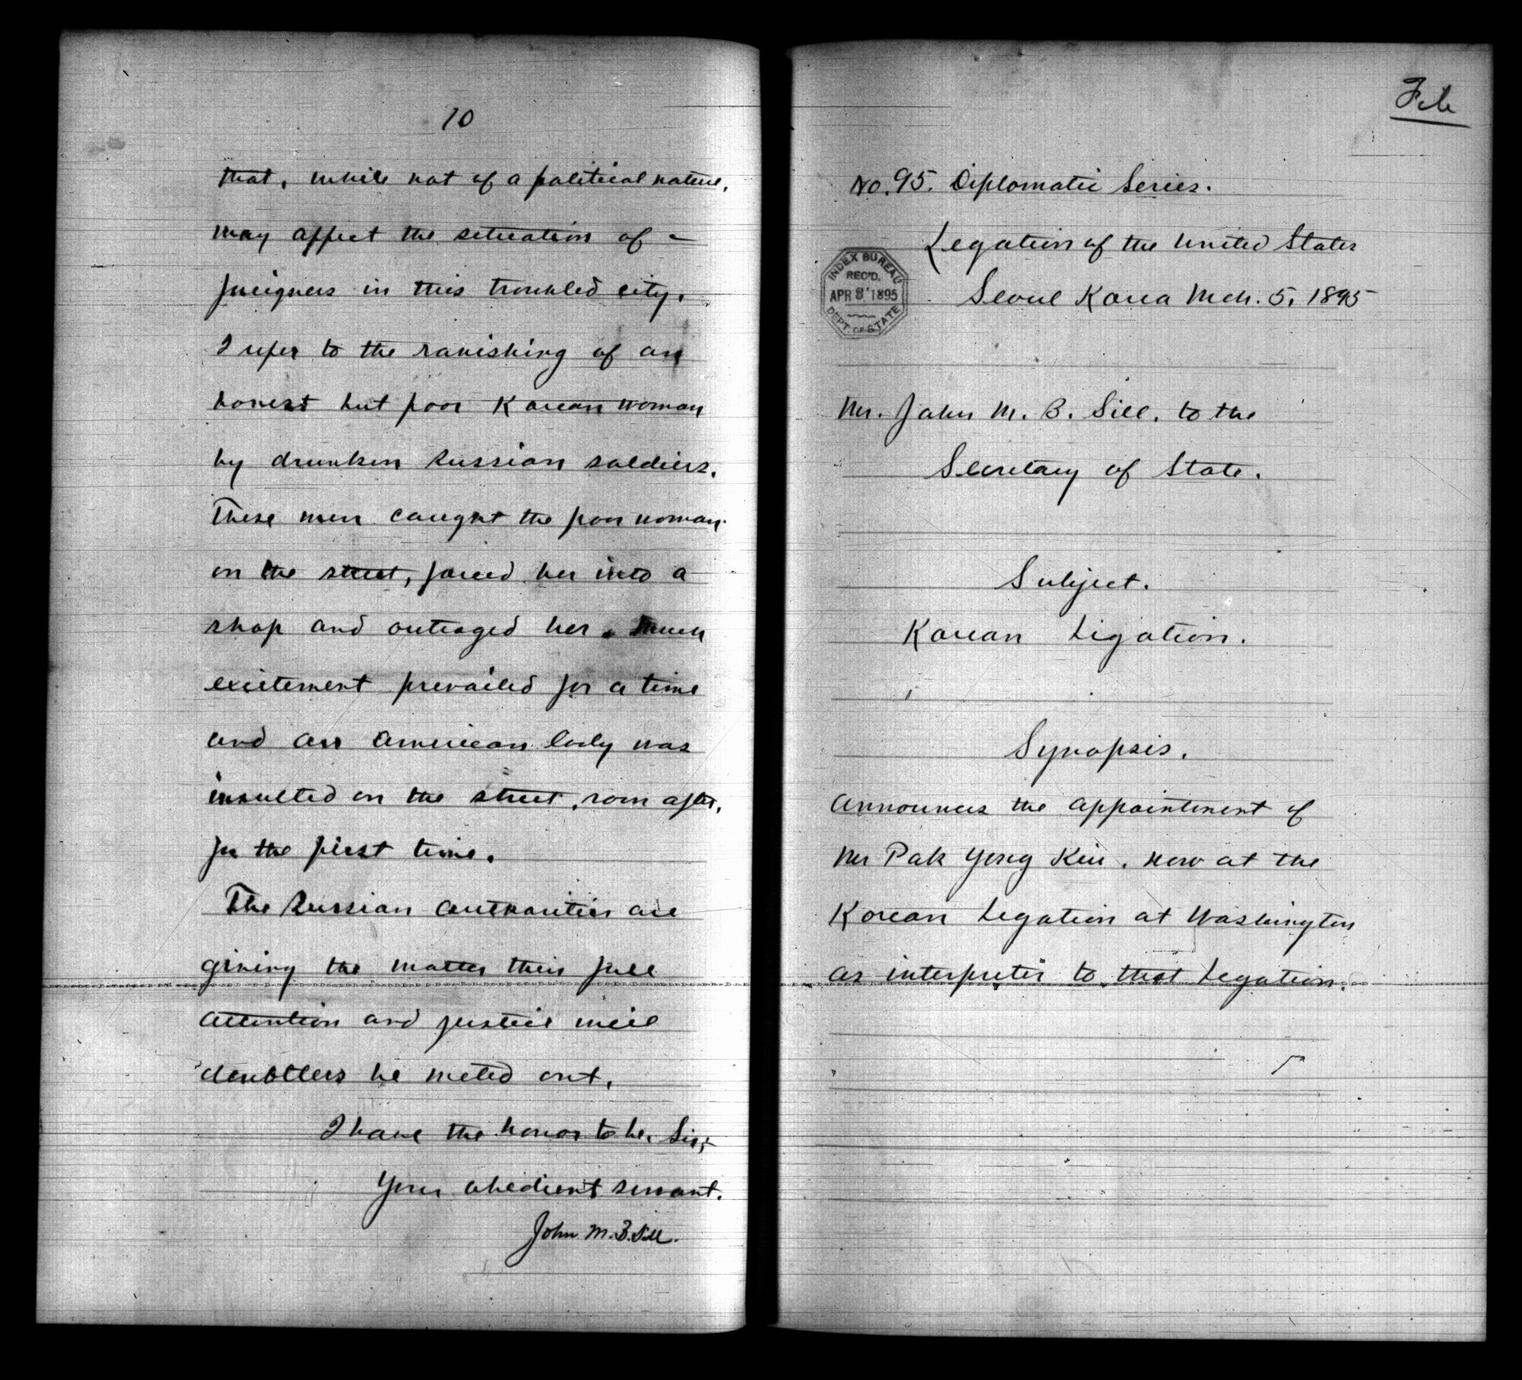 10
that, while not of a political nature,
may affect the situation of -
foreigners in this troubled city.
I refer to the ravishing of an
honest but poor Korean woman
by drunken Russian soldiers.
These men caught the poor woman
on the street, forced her into a
shop and outraged her. Much
excitement prevailed for a time
and an American lady was
insulted on the street, soon after,
for the first time.
The Russian authorities are
giving the matter their full
attention and justice will
doubtless be meted out.
I have the honor to be, Sir,
Your obedient servant.
John M. B. Sill.
File
No. 95. Diplomatic Series.
Legation of the United States
Seoul Korea Mch. 5, 1895
INDEX BUREAU
REC'D.
APR 8 1895
DEPT. OF STATE
Mr. John M. B. Sill, to the
Secretary of State.
Subject.
Korean Legation.
Synopsis.
Announces the appointment of
Mr Pak Yong Kiu, now at the
Korean Legation at Washington
as interpreter to that Legation.